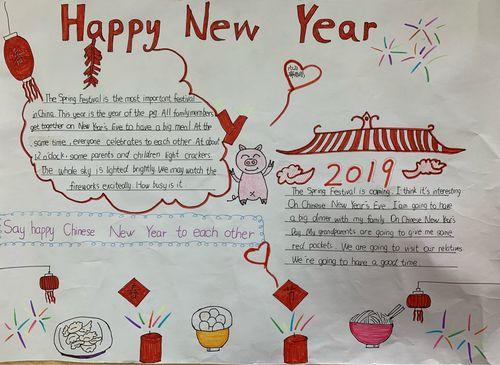 Happy New Year
The Spring Festival is the most important festival
in China. This year is the year of the pig. All family members
get together on New Year's Eve to have a big meal. At the
same time, everyone celebrates to each other. At about
12 o'clock, some parents and children light crackers.
The whole sky is lighted brightly. We may watch the
fireworks excitedly. How busy it is.
Say happy Chinese New Year to each other
2019
The Spring Festival is coming. I think it's interesting.
On Chinese New Year's Eve. I am going to have
a big dinner with my family. On Chinese New Year's
Day. My grandparents are going to give me some
red pockets. We are going to visit our relatives.
We're going to have a good time.
春